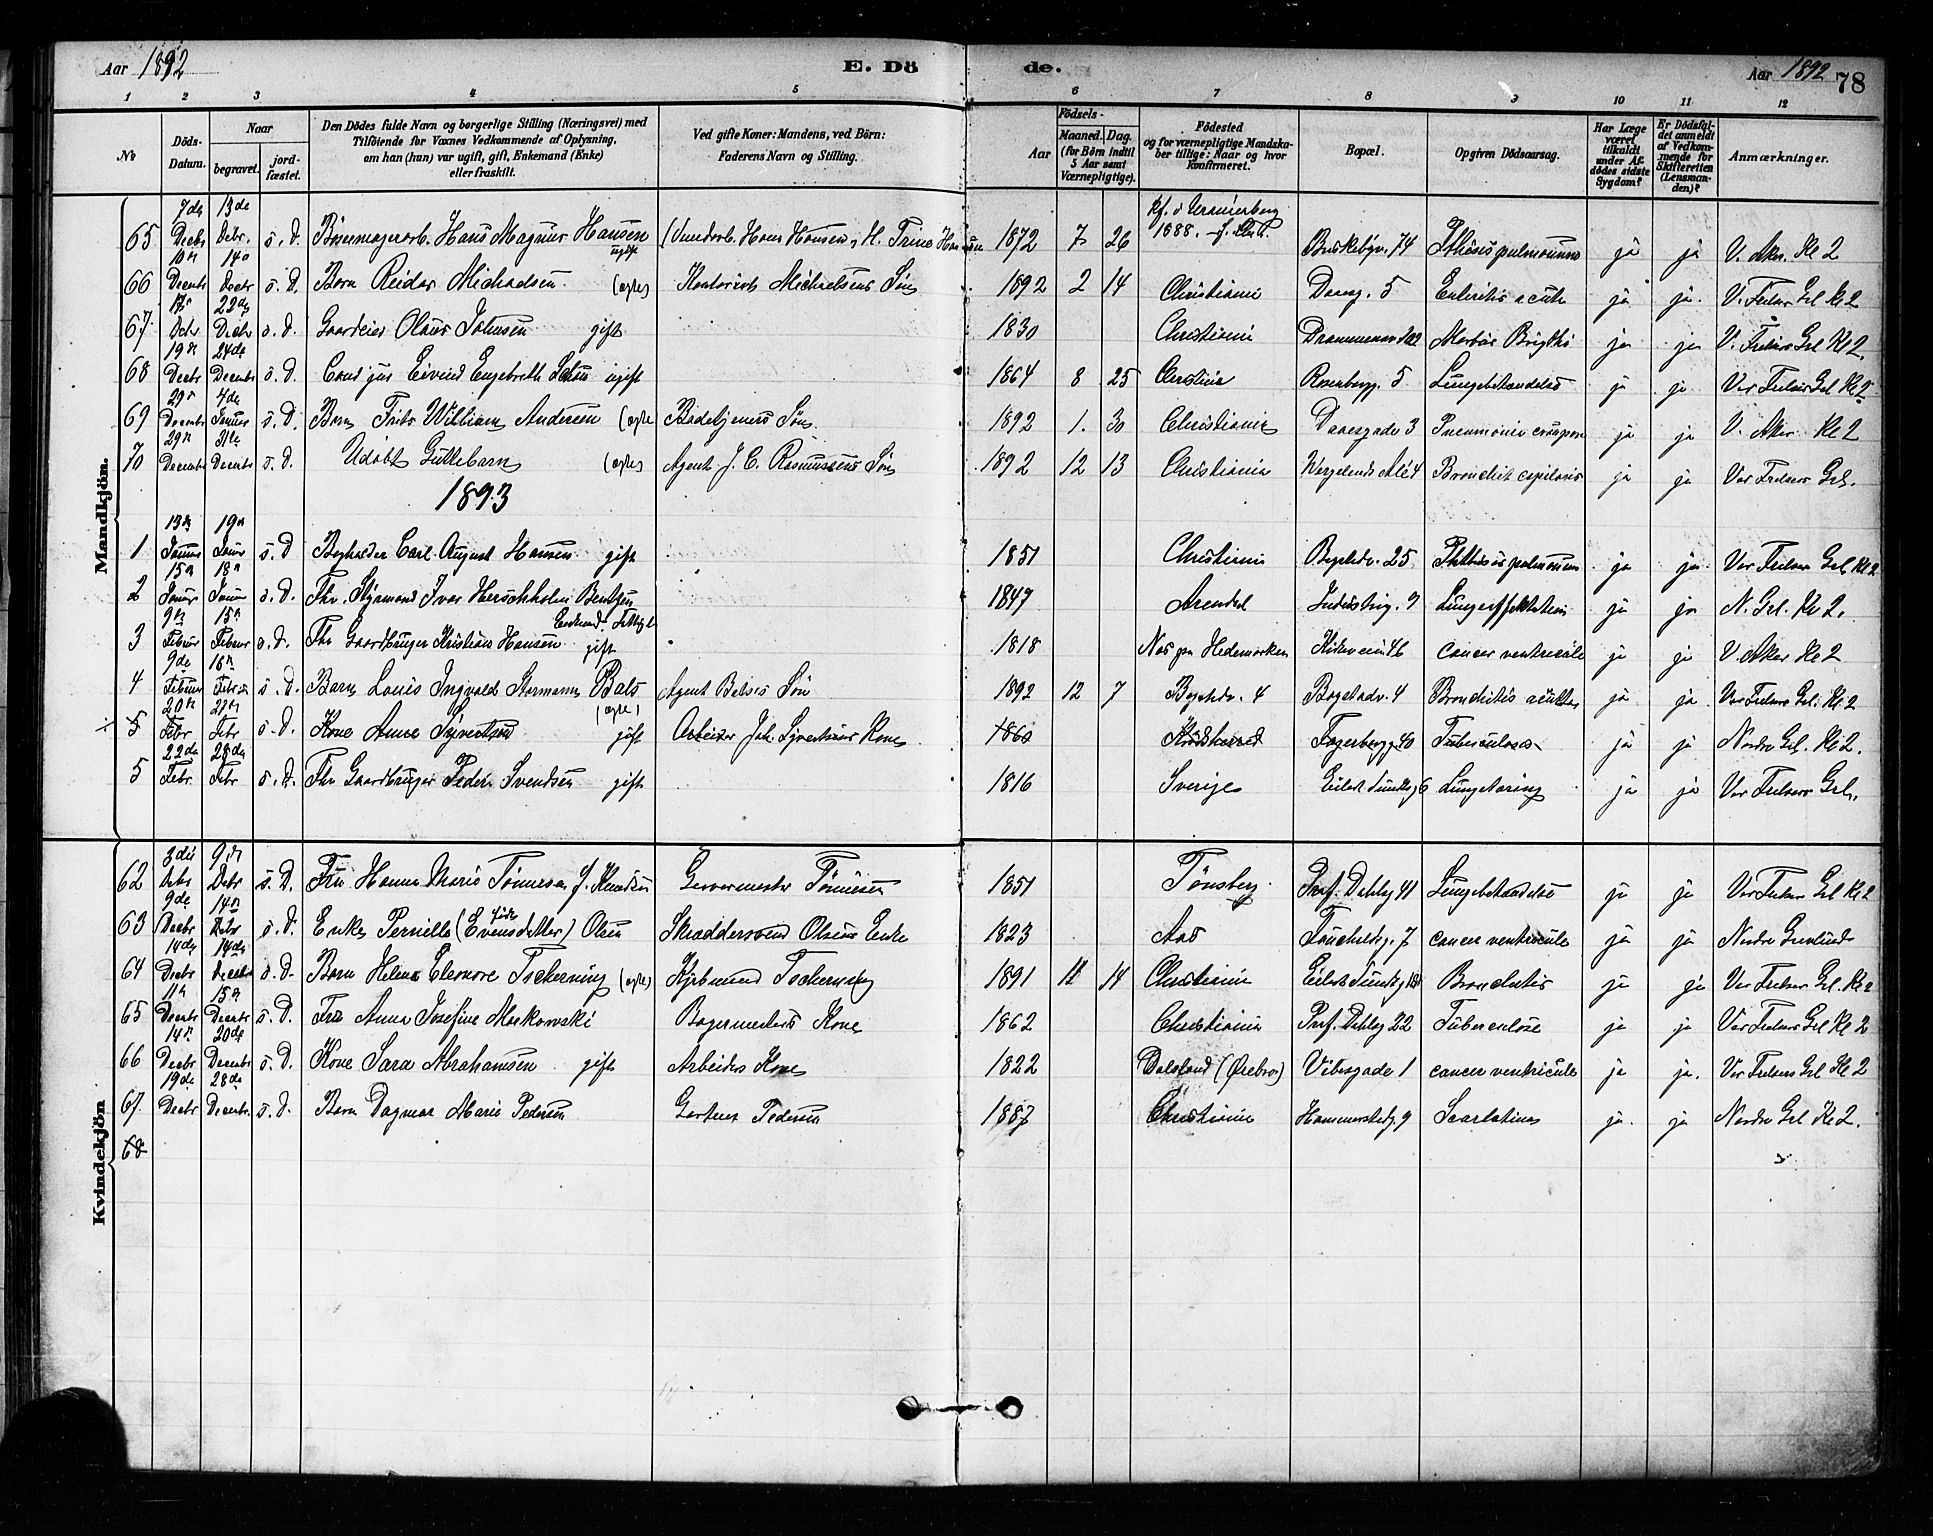 Aar 1892
E. Dö
de.
Aar 1892
78
1 2 3 4 5 6 7 8 9 10 11 12
№
Döds-Datum.
Naar
begravet.
jord-fæstet.
Den Dödes fulde Navn og borgerlige Stilling (Næringsvei) med
Tilföiende for Voxnes Vedkommende af Oplysning,
om han (hun) var ugift, gift, Enkemand (Enke)
eller fraskilt.
Ved gifte Koner: Mandens, ved Börn:
Faderens Navn og Stilling.
Födsels-
Aar
Maaned. Dag.
(for Börn indtil
5 Aar samt
Værnepligtige).
Födested
og for værnepligtige Mandska-
ber tillige: Naar og hvor
Konfirmeret.
Bopæl.
Opgiven Dödsaarsag.
Har Læge
været
tilkaldt
under Af-
dödes sidste
Sygdom?
Er Dödsfal-
det anmeldt
af Vedkom-
mende for
Skifteretten
(Lensman-
den)?
Anmærkninger.
Mandkjön.
65 7de Decbr 13de Debr. s. D. Hans Magnus Hansen ugift Hans Hansen, H. Trine 1872 7 26 1888 74 ja ja V. Aker. Kl 2
66 10n Decbr 14n Decbr s. D. Barn Reidar Michaelsen (ægte) Kontorist Michaelsens Sön 1892 2 14 Christiania Daasg. 5 Enteritis acuta ja ja. V. Frelsers Grl Kl 2
67. Debr 22de Decbr s. D. Gaardeier Olaus Johnsen gift 1830 Christiania Morbus Brigthi ja ja V. Frelsers Grl Kl 2.
68 19n Decbr 24de Decembr s. D. Cand jur Eivind Engebreth ugift 1864 8 25 Christiania Rosenborgg. 5 Lungebetændelse ja ja Vor Frelsers Grl Kl 2
69 29n Decembr 4de Januar s. D. Barn Frits William Andersen (ægte Badebetjenets Sön 1892 1. 30 Christiania Daasgade 3 Pneumonia crouposa ja ja V. Aker Kl 2
70 29n Decembr 31te Decembr s. D. Udöbt Guttebarn (ægte) Agent J. C. Rasmussens Sön 1892 12 13 Christiania Wergelands Alé 4 Bronchit capilaris ja ja Vor Frelsers Grl.
1893
1 13n Januar 19n Januar s. D Bogholder Carl August Hansen gift 1851 Christiania Bogstadv. 25 Phthisis pulmonum ja ja Vor Frelsers Grl Kl 2
2 15n Januar 18n Januar s. D. Fhv. Styrmand Ivar Herschholm Bentzen Enkemd. 1847 Arendal Industrig. 9 ja ja N. Grl. Kl 2.
3 9n Februar 15n Februar s. D. Fhv Gaardbruger Kristian Hansen gift 1818 Næs paa Hedemarken Kirkeveien 46 cancer ventriculi ja ja V. Aker Kl 2
4 9de Februar 16n Februar s. D. Barn Louis Ingvald Stormann Bals (ægte) Agent Balses Sön 1892 12 7 Bogstadv. 4 Bogstadv. 4 Bronchitis acuta ja ja Vor Frelsers Grl. Kl 2
5 20n Febr 27n Febr s. D. Kone Anne Syvertsen gift Arbeider Joh. Syvertsens Kone 1860 Krödsherred Fagerborgg 40 Tuberculose ja ja Nordre Grl. Kl 2.
5 22de Febr. 28de Febr s. D. Fhv Gaardbruger Peder Svendsen gift 1816 Sverige Eilert Sundtsg 6 Lungetæring ja ja Vor Frelsers Grl.
Kvindekjön
62 3die Debr 9n Debr s. D. Fru Hanna Marie Tönnesen f. Knudsen Garvermester Tönnesen 1851 Tönsberg. Prof. Dahlsg 41 Lungebetændelse ja ja Vor Frelsers Grl Kl 2
63 9de Decbr 14n Debr s. D. Enke Pernille (födt Evensdatter) Olsen Skræddersvend Olsens Enke 1823 Aas 7 cancer ventriculi ja ja Nordre Gravlund
64 14de Decbr 14de Decbr s. D. Barn Helene Eleonore Tscherning (ægte) Kjöbmand Tscherning 1891 11 14 Christiania Eilert Sundtsg 18 Bronchitis ja ja Vor Frelsers Grl. Kl 2
65 11n Decembr 15n Decembr s. D. Fru Anna Josefine Markowski Bagermesters Kone 1862 Christiania Prof. Dahlsg 22 Tuberculose ja ja Vor Frelsers Grl Kl 2
66 14n Decbr 20de Decembr s. D. Kone Sara Abrahamsen gift Arbeiders Kone 1822 Dalsland (Örebro) Vibesgade 1 cancer ventriculi ja ja. Vor Frelsers Grl Kl 2
67. 19de Decbr 28de Decembr. s. D. Barn Dagmar Marie Pedersen Gartner Pedersen 1887 Christiania Hammerstadg. 9 Scarlatina ja. ja Nordre Grl Kl 2.
68